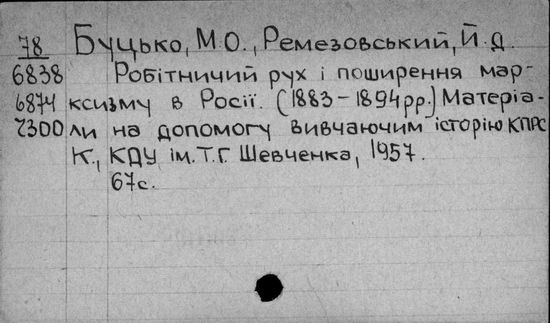 78 Буцько, М.О., Ремезовський, Й.Д.
6838 Робітничий рух і поширення мар-
6874 ксизму в Росії. (1883-1894рр.) Матеріа-
2300 ли на допомогу вивчаючим історію КПРС
К., КДУ ім. Т.Г. Шевченка, 1957.
67с.